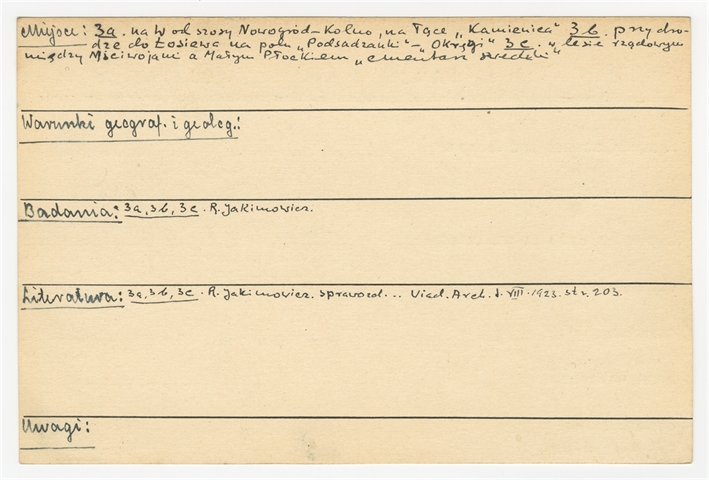 Miejsce: 3a. na W od szosy Nowogród–Kolno, na łące „Kamienica" 3b. przy dro-
dze do Łosiewa na polu „Podsadzanki" – „Okręgi" 3c. w lesie rządowym
między Mściwojami a Małym Płockiem „cmentarz szwedzki"
Warunki geograf. i geolog.:
Badania: 3a, 3b, 3c. R. Jakimowicz.
Literatura: 3a, 3b, 3c. R. Jakimowicz. Sprawozd... Wiad. Arch. t. VIII. 1923. str. 203.
Uwagi: